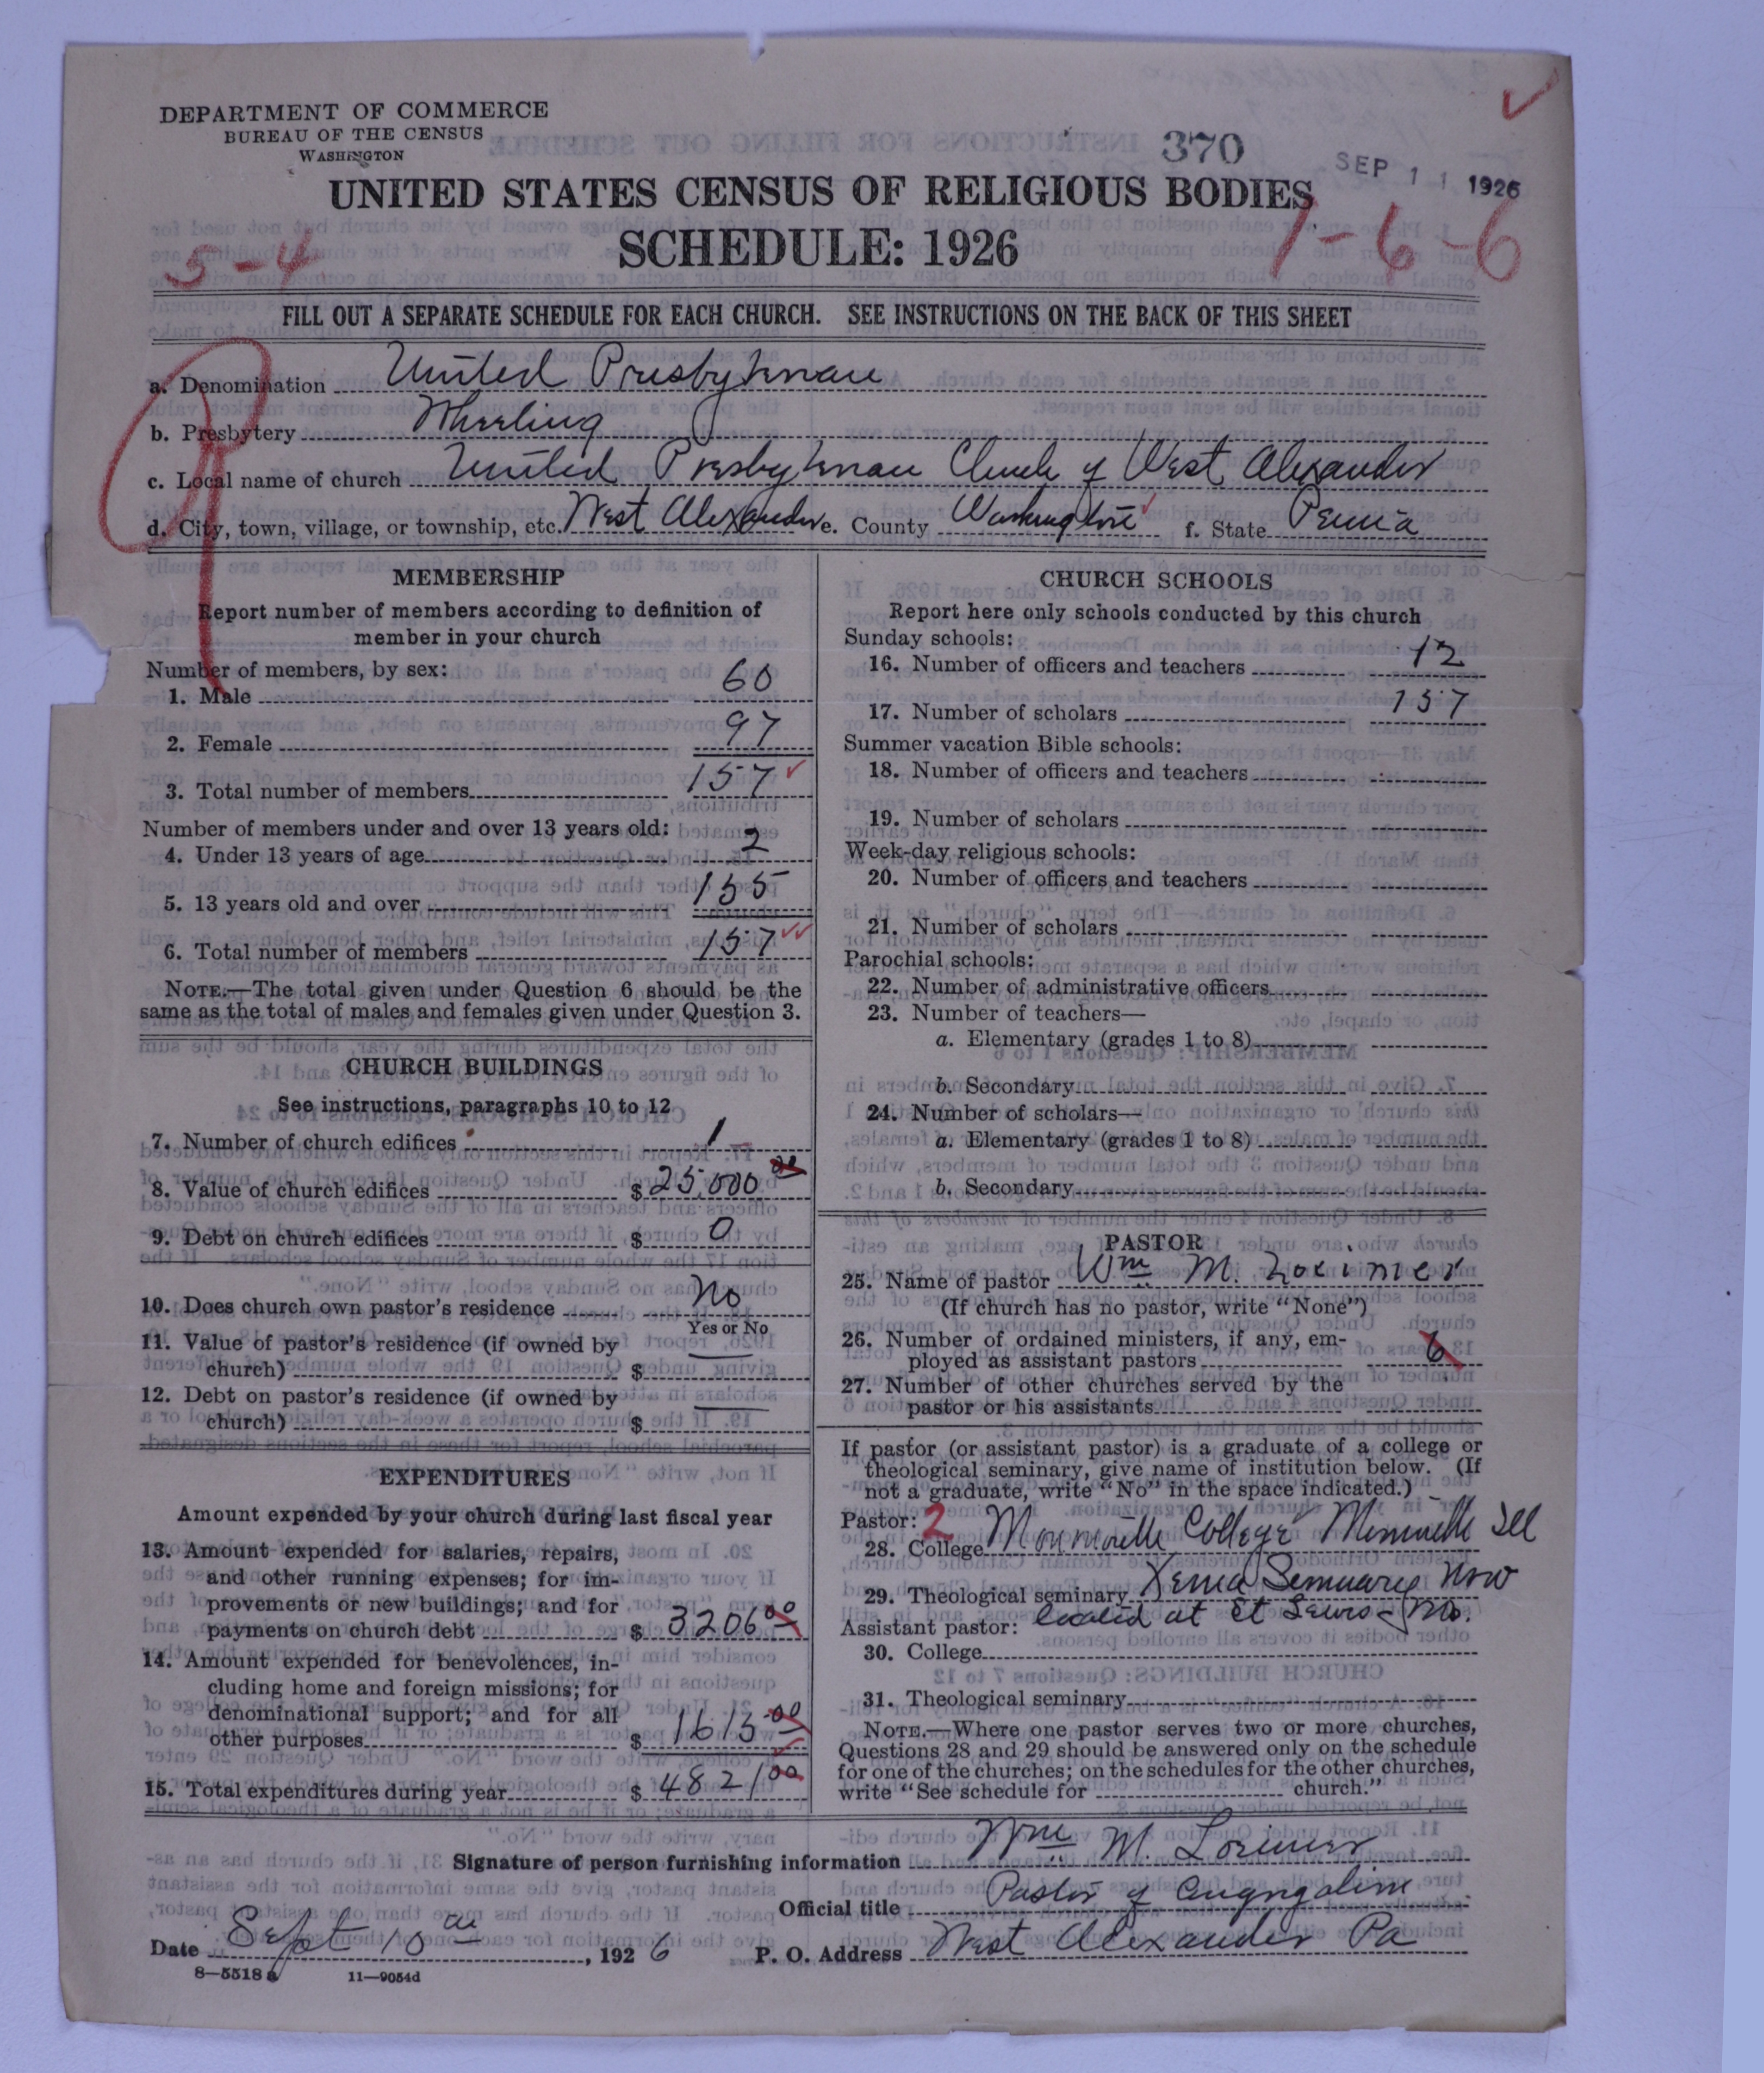 DEPARTMENT OF COMMERCE
BUREAU OF THE CENSUS
WASHINGTON
370
SEP 11 1926
UNITED STATES CENSUS OF RELIGIOUS BODIES
SCHEDULE: 1926
5-4
1-6-6
FILL OUT A SEPARATE SCHEDULE FOR EACH CHURCH. SEE INSTRUCTIONS ON THE BACK OF THIS SHEET
a. Denomination United Presbyterian
b. Presbytery Wheeling
c. Local name of church United Presbyterian Church of West Alexander
d. City, town, village, or township, etc. West Alexander e. County Washington f. State Penna
MEMBERSHIP
Report number of members according to definition of
member in your church
Number of members, by sex:
1. Male 60
2. Female 97
3. Total number of members 157
Number of members under and over 13 years old:
4. Under 13 years of age 2
5. 13 years old and over 155
6. Total number of members 157
NOTE.—The total given under Question 6 should be the
same as the total of males and females given under Question 3.
CHURCH BUILDINGS
See instructions, paragraphs 10 to 12
7. Number of church edifices 1
8. Value of church edifices $ 25,000 00
9. Debt on church edifices $ 0
10. Does church own pastor's residence No
Yes or No
11. Value of pastor's residence (if owned by
church) $ —
12. Debt on pastor's residence (if owned by
church) $ —
EXPENDITURES
Amount expended by your church during last fiscal year
13. Amount expended for salaries, repairs,
and other running expenses; for im-
provements or new buildings; and for
payments on church debt $ 3206 00
14. Amount expended for benevolences, in-
cluding home and foreign missions; for
denominational support; and for all
other purposes $ 1615 00
15. Total expenditures during year $ 4821 00
CHURCH SCHOOLS
Report here only schools conducted by this church
Sunday schools:
16. Number of officers and teachers 12
17. Number of scholars 157
Summer vacation Bible schools:
18. Number of officers and teachers
19. Number of scholars
Week-day religious schools:
20. Number of officers and teachers
21. Number of scholars
Parochial schools:
22. Number of administrative officers
23. Number of teachers—
a. Elementary (grades 1 to 8)
b. Secondary
24. Number of scholars—
a. Elementary (grades 1 to 8)
b. Secondary
PASTOR
25. Name of pastor Wm M. Lorimer
(If church has no pastor, write "None")
26. Number of ordained ministers, if any, em-
ployed as assistant pastors
27. Number of other churches served by the
pastor or his assistants
If pastor (or assistant pastor) is a graduate of a college or
theological seminary, give name of institution below. (If
not a graduate, write "No" in the space indicated.)
Pastor: 2
28. College Monmouth College Monmouth Ill
29. Theological seminary Xenia Seminary Now
located at St Louis Mo.
Assistant pastor:
30. College
31. Theological seminary
NOTE.—Where one pastor serves two or more churches,
Questions 28 and 29 should be answered only on the schedule
for one of the churches; on the schedules for the other churches,
write "See schedule for church."
Signature of person furnishing information Wm M. Lorimer
Official title Pastor of Congregation
Date Sept 10 th, 1926 P. O. Address West Alexander Pa
8—5518 a 11—9054d